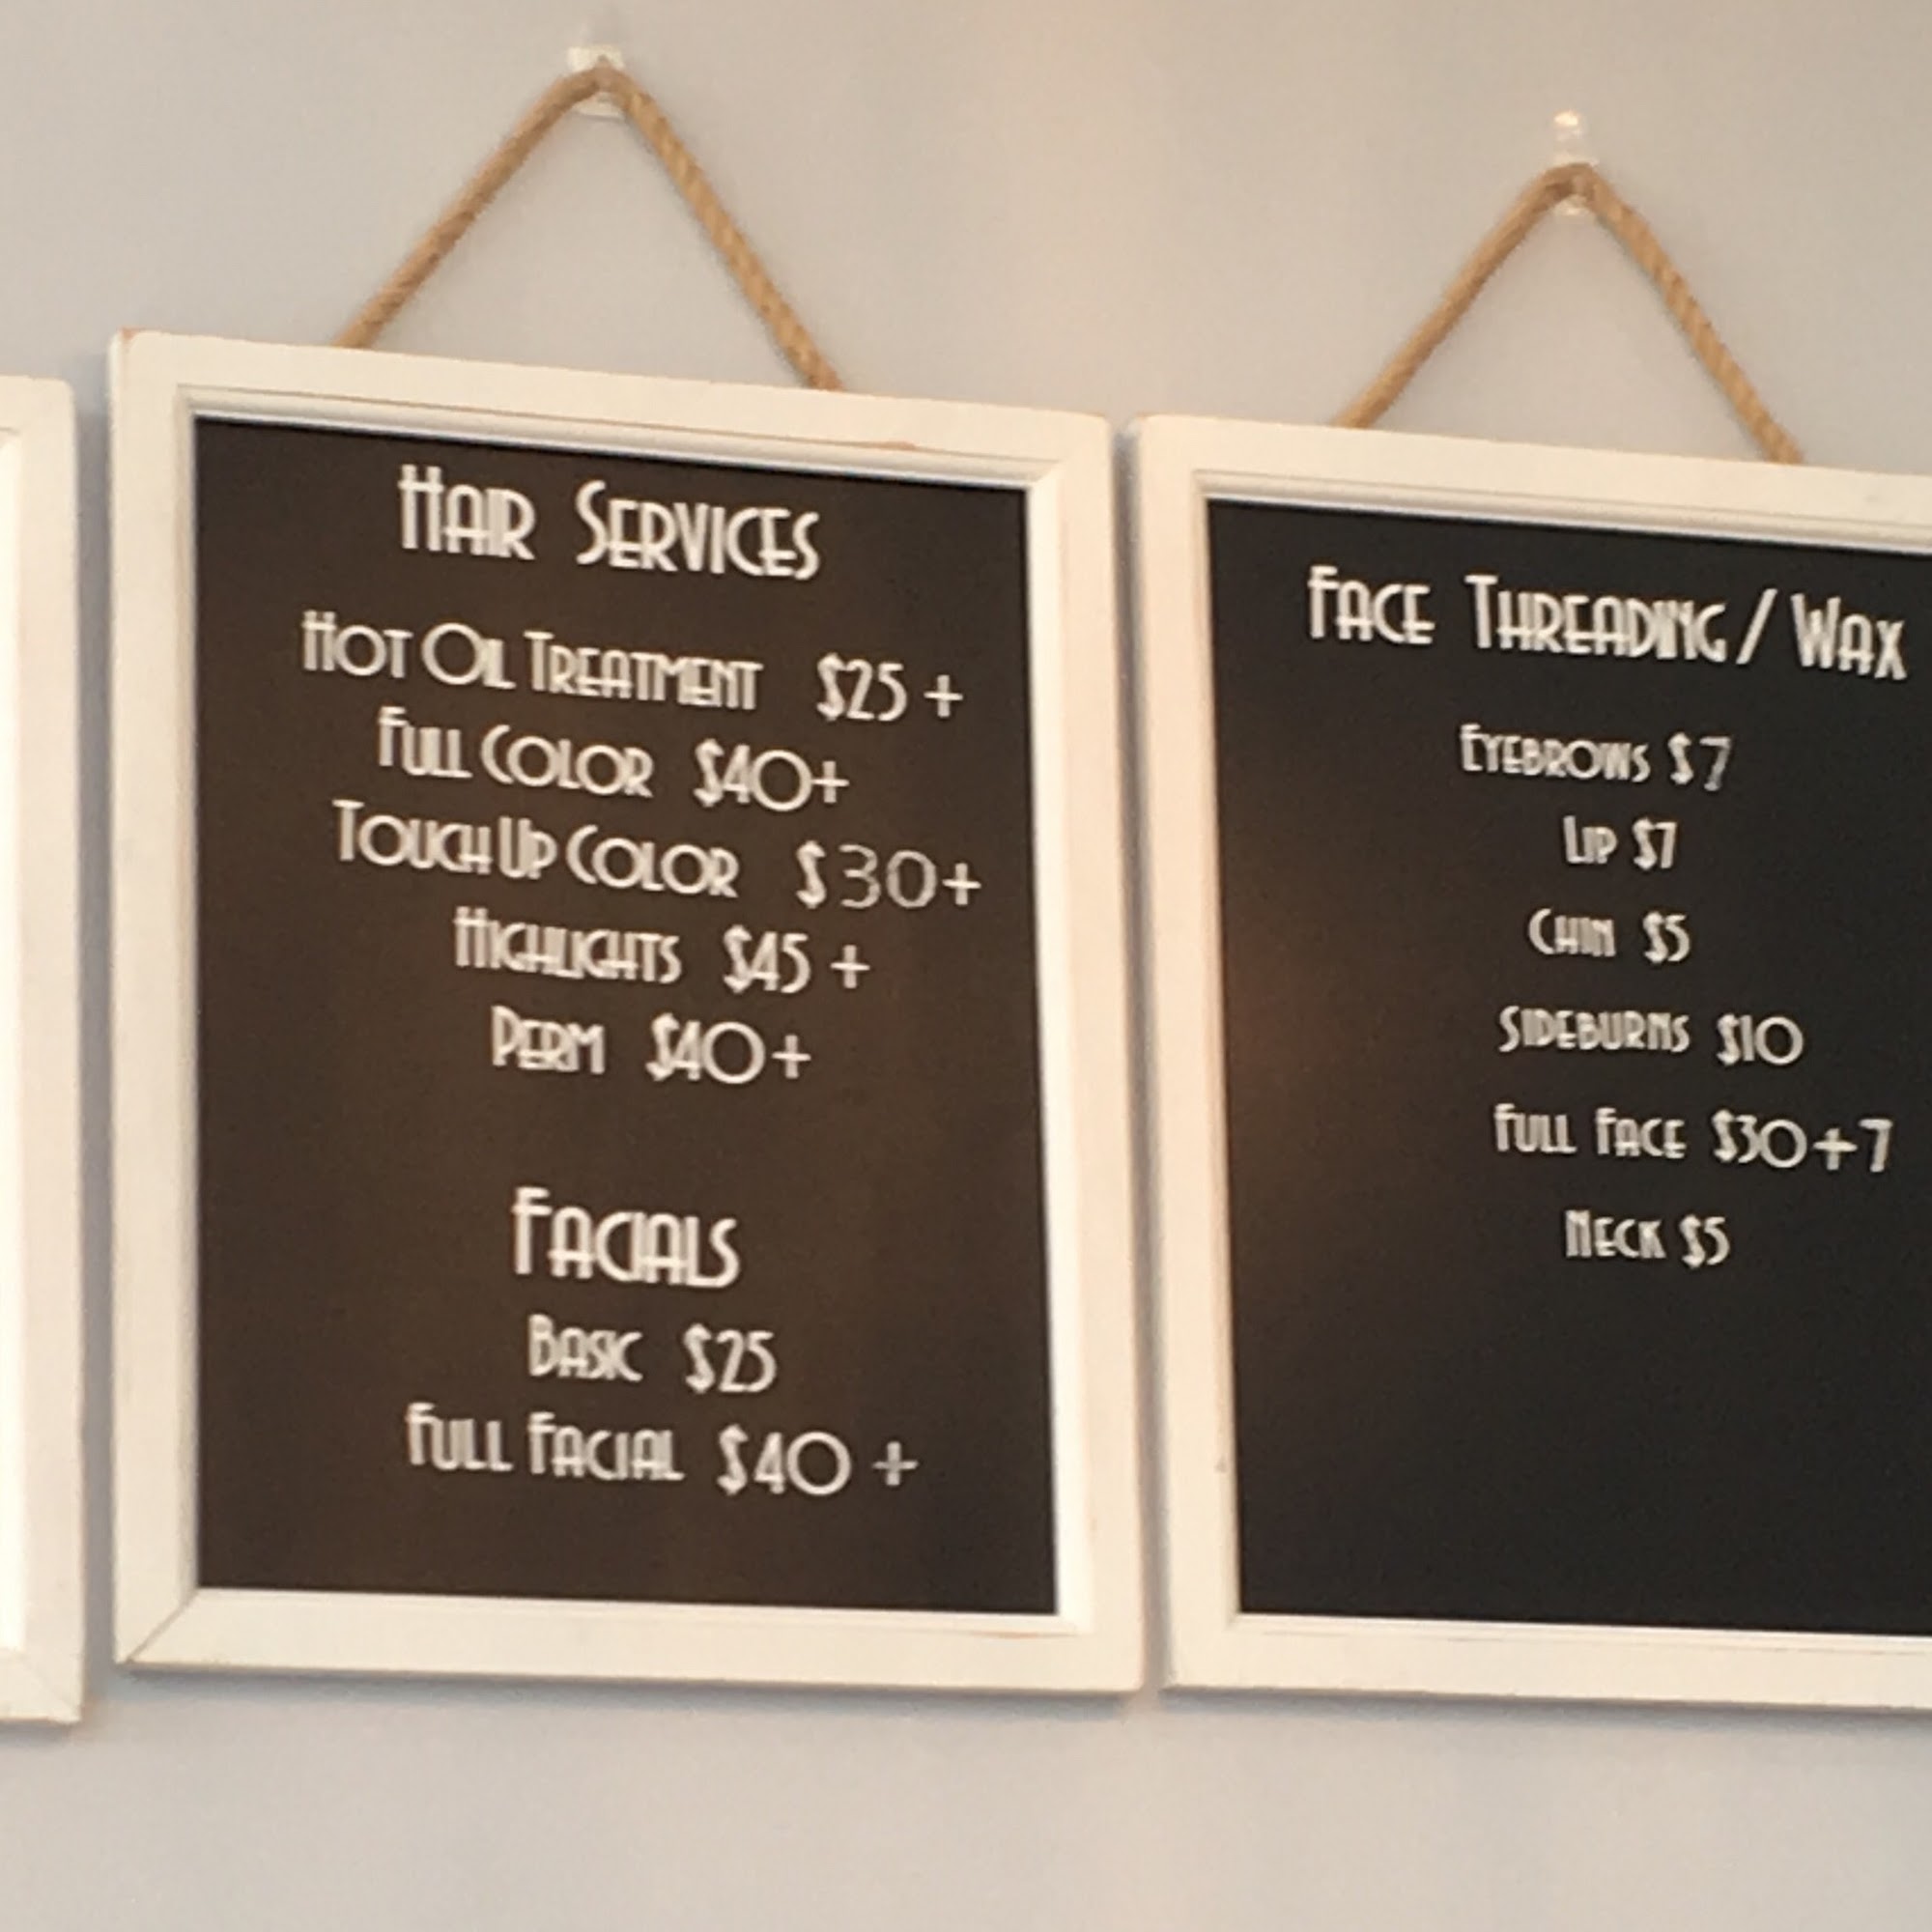 Hair Services
Hot Oil Treatment $25 +
Full Color $40+
Touch Up Color $30+
Highlights $45 +
Perm $40+
Facials
Basic $25
Full Facial $40 +
Face Threading / Wax
Eyebrows $7
Lip $7
Chin $5
Sideburns $10
Full Face $30+7
Neck $5